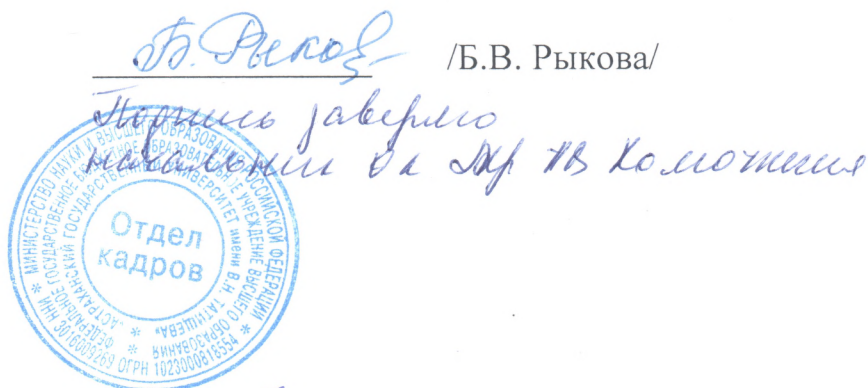 Б. Рыков /Б.В. Рыкова/
Подпись заверяю
начальник ОК
МИНИСТЕРСТВО НАУКИ И ВЫСШЕГО ОБРАЗОВАНИЯ РОССИЙСКОЙ ФЕДЕРАЦИИ
ФЕДЕРАЛЬНОЕ ГОСУДАРСТВЕННОЕ БЮДЖЕТНОЕ ОБРАЗОВАТЕЛЬНОЕ УЧРЕЖДЕНИЕ ВЫСШЕГО ОБРАЗОВАНИЯ
"АСТРАХАНСКИЙ ГОСУДАРСТВЕННЫЙ УНИВЕРСИТЕТ имени В.Н. ТАТИЩЕВА"
ИНН 3016009269 ОГРН 1023000818554
Отдел
кадров